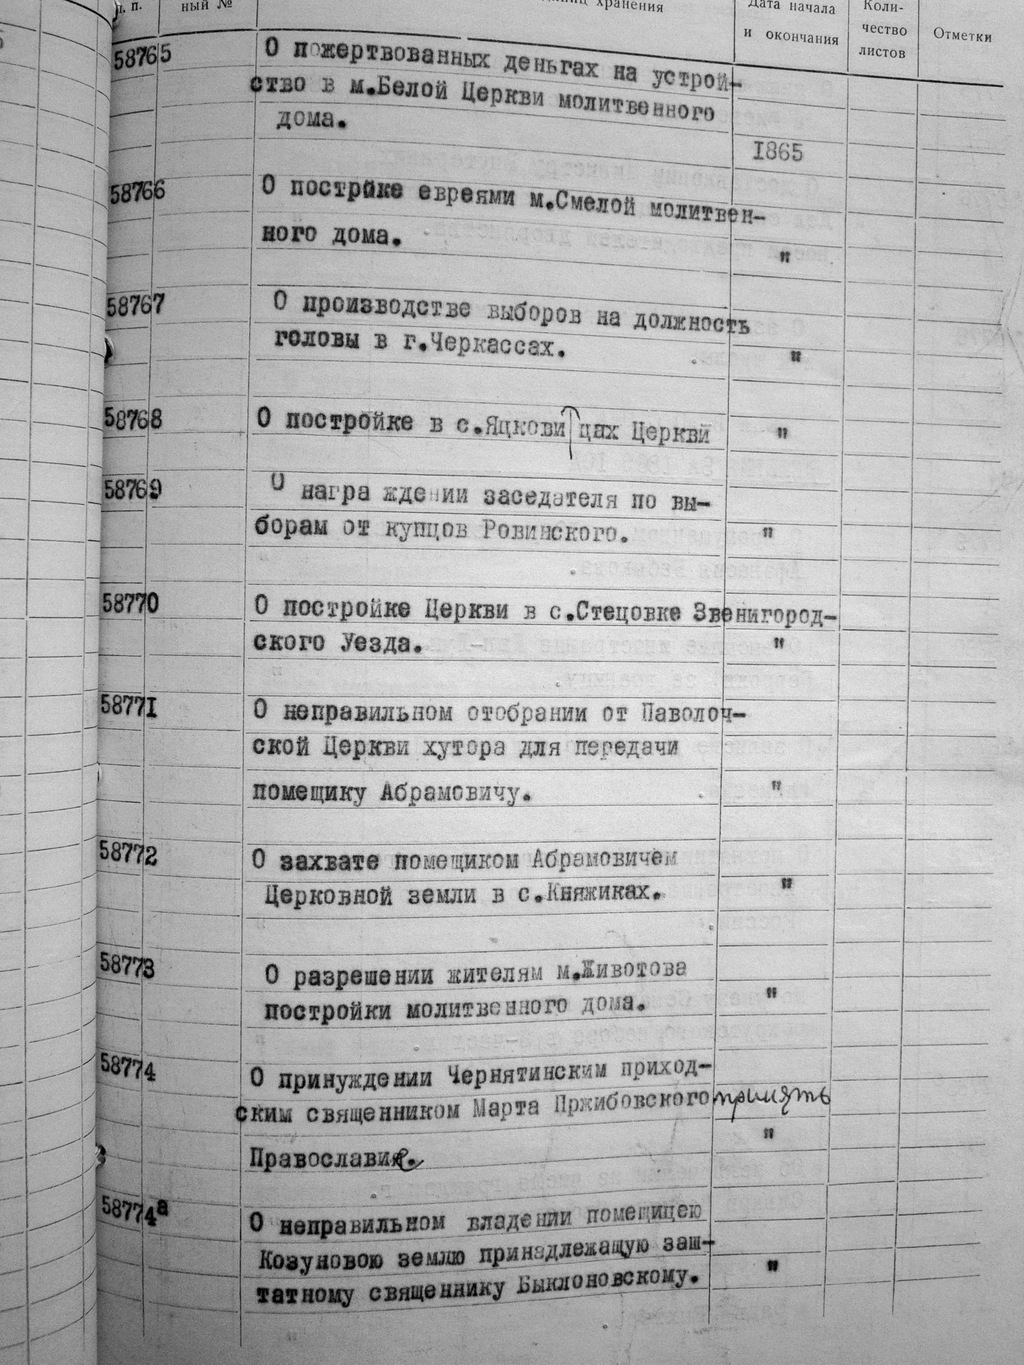 п. п.
ный №
хранения
Дата начала
и окончания
Коли-
чество
листов
Отметки
58765
О пожертвованных деньгах на устрой-
ство в м.Белой Церкви молитвенного
дома.
1865
58766
О постройке евреями м.Смелой молитвен-
ного дома.
"
58767
О производстве выборов на должность
головы в г.Черкассах.
"
58768
О постройке в с.Яцкови цах Церкви
"
58769
О награ ждении заседателя по вы-
борам от купцов Ровинского.
"
58770
О постройке Церкви в с.Стецовке Звенигород-
ского Уезда.
"
58771
О неправильном отобрании от Паволоч-
ской Церкви хутора для передачи
помещику Абрамовичу.
"
58772
О захвате помещиком Абрамовичем
Церковной земли в с.Княжиках.
"
58773
О разрешении жителям м.Животова
постройки молитвенного дома.
"
58774
О принуждении Чернятинским приход-
ским священником Марта Пржибовского принять
"
Православие.
58774а
О неправильном владении помещицею
Козуновою землю принадлежащую заш-
татному священнику Быклоновскому.
"